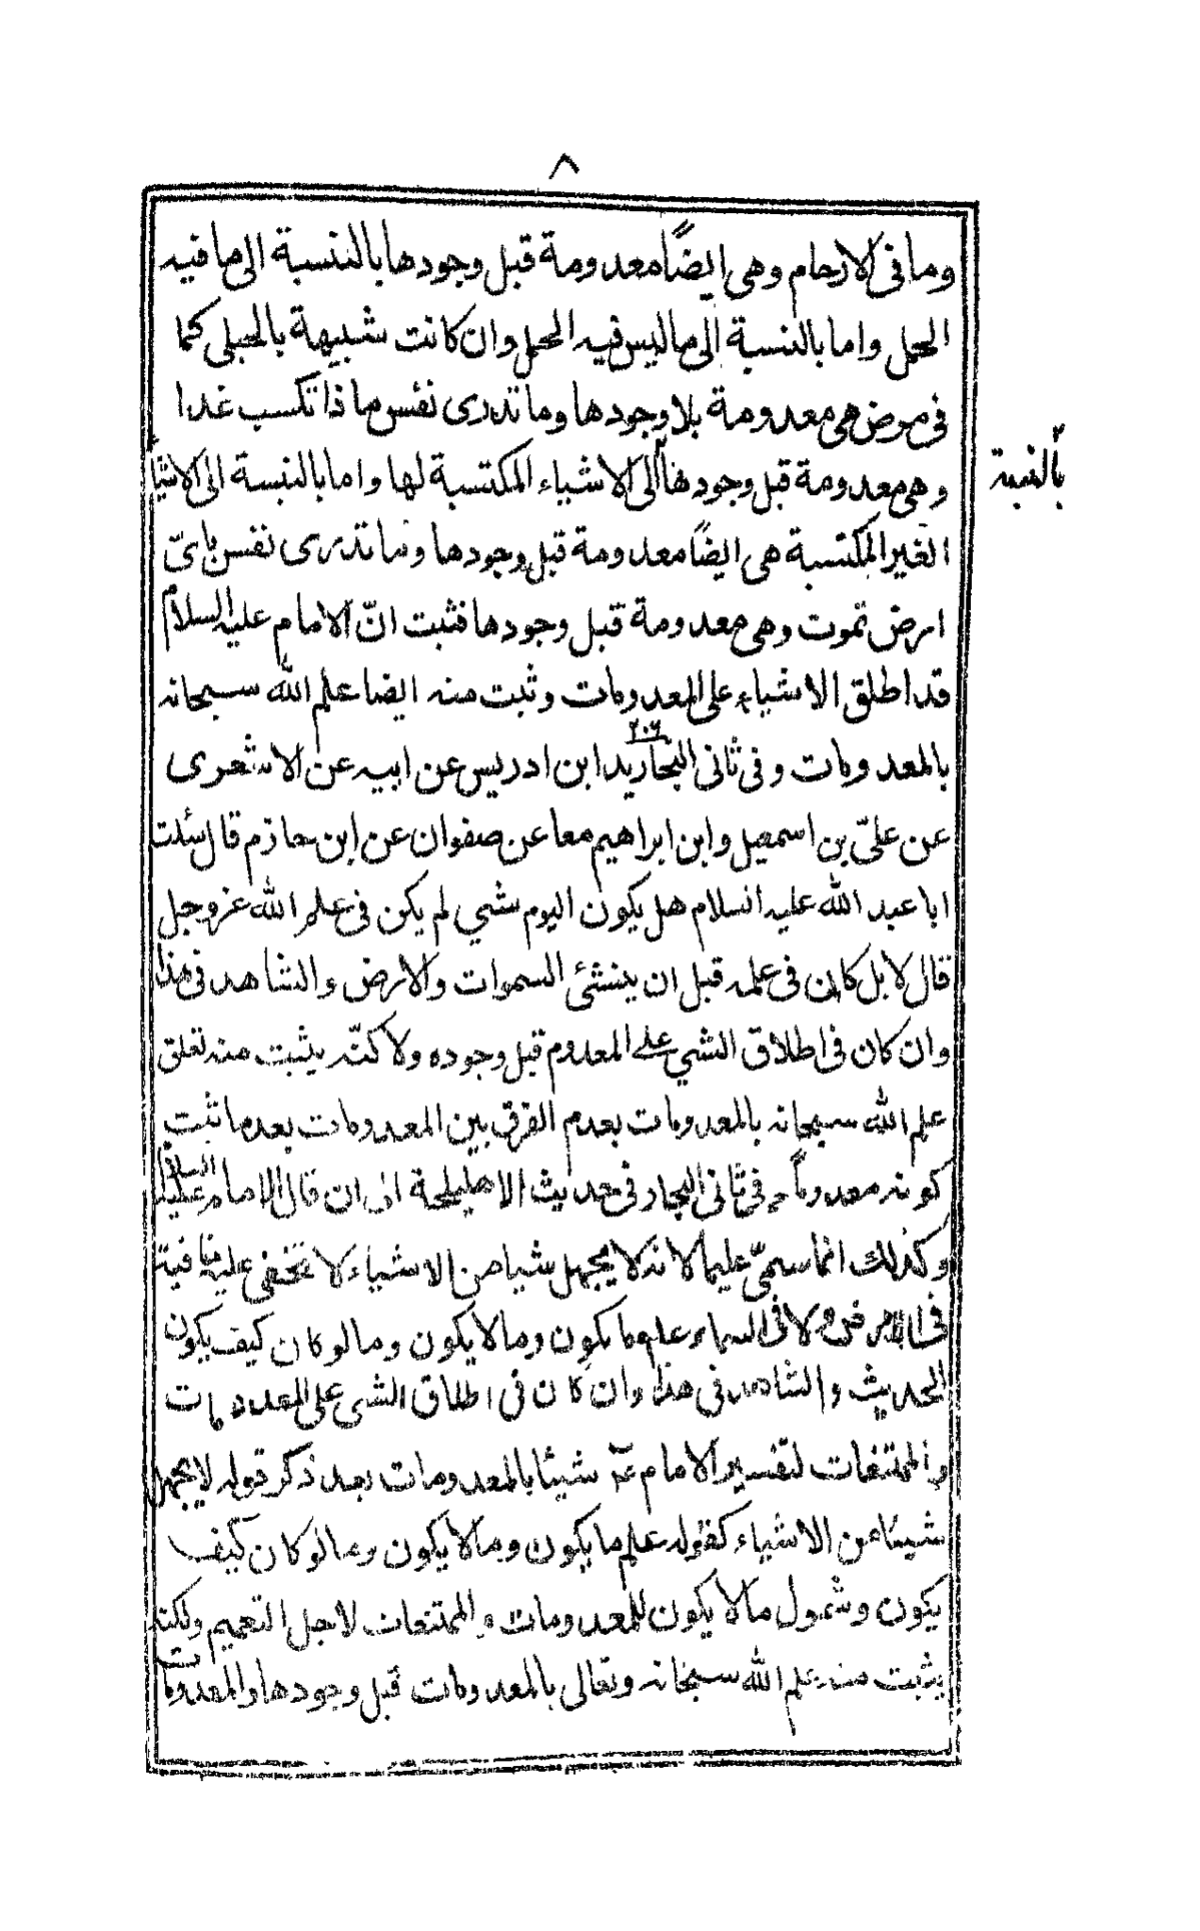 ٨
وما فى الارحام وهى ايضاً معدومة قبل وجودها بالننسبة الى ما فيه
الحمل واما بالننسبة الى ما ليس فيه الحمل وان كانت شبيهة بالحبلى كما
فى مرض هى معدومة بلا وجودها وما تدرى نفس ما ذا تكسب غدا
وهى معدومة قبل وجودها٢ الى الاشياء المكتسبة لها واما بالنبسة الى الاشياء
٢ بالنسبة
الغير المكتسبة هى ايضاً معدومة قبل وجودها وما تدرى نفس باىّ
ارض تموت وهى معدومة قبل وجودها فثبت انّ الامام عليه السلام
قد اطلق الاشياء على المعدومات وثبت منه ايضا علم الله سبحانه
بالمعدومات وفى ثانى البحار ٢٠٦ يد ابن ادريس عن ابيه عن الاشعرى
عن علىّ بن اسمعيل وابن ابراهيم معا عن صفوان عن ابن حازم قال سئلت
ابا عبد الله عليه السلام هل يكون اليوم شىء لم يكن فى علم الله عز وجل
قال لا بل كان فى علمه قبل ان ينشئ السموات والارض والشاهد فى هذا
وان كان فى اطلاق الشىء على المعدوم قبل وجوده ولاكنّه يثبت منه تعلق
علم الله سبحانه بالمعدومات بعدم الفرق بين المعدومات بعد ما ثبت
كونه معدوماً وفى ثانى البحار فى حديث الاهليلجة الى ان قال الامام عليه السلام
وكذلك انما سمىّ عليما لانه لا يجهل شيا من الاشياء لا تخفى عليه خافية
فى الارض ولا فى السماء علم ما يكون وما لا يكون وما لو كان كيف يكون
الحديث والشاهد فى هذا وان كان فى اطلاق الشى على المعدومات
والممتنعات لتفسير الامام ع شيئا بالمعدومات بعد ذكر قوله لا يجهل
شيئا من الاشياء كقوله علم ما يكون وما لا يكون وما لو كان كيف
يكون وشمول ما لا يكون للمعدومات والممتنعات لاجل التعميم ولكنه
يثبت منه علم الله سبحانه وتعالى بالمعدومات قبل وجودها والمعدومات